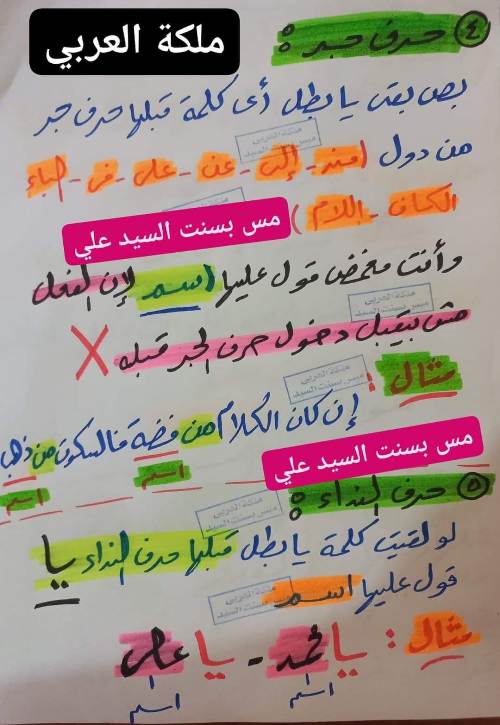 ملكة العربي
٤ حرف جر :
بص بقى يا بطل أى كلمة قبلها حرف جر
من دول (من - إلى - عن - على - فى - الباء
الكاف - اللام)
مس بسنت السيد علي
وأنت مغمض قول عليها (اسم) لإن الفعل
مش بيقبل دخول حرف الجر قبله X
مثال :
إن كان الكلام من فضة فالسكوت من ذهب
اسم
اسم
مس بسنت السيد علي
٥ حرف النداء :
لو لقيت كلمة يا بطل قبلها حرف النداء يا
قول عليها اسم
مثال : يا محمد - يا على
اسم
اسم